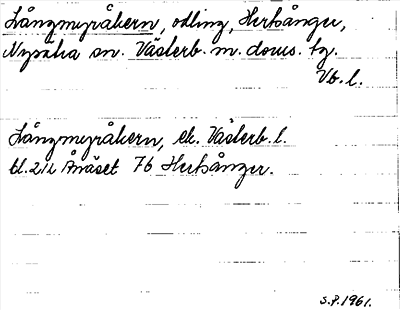 Långmyråkern, odling, Hertsånger,
Nysätra sn. Västerb. m. doms. tg.
Vb. l.
Långmyråkern, ek. Västerb. l.
bl. 212 Ånäset 7b Hertsånger.
S.P. 1961.